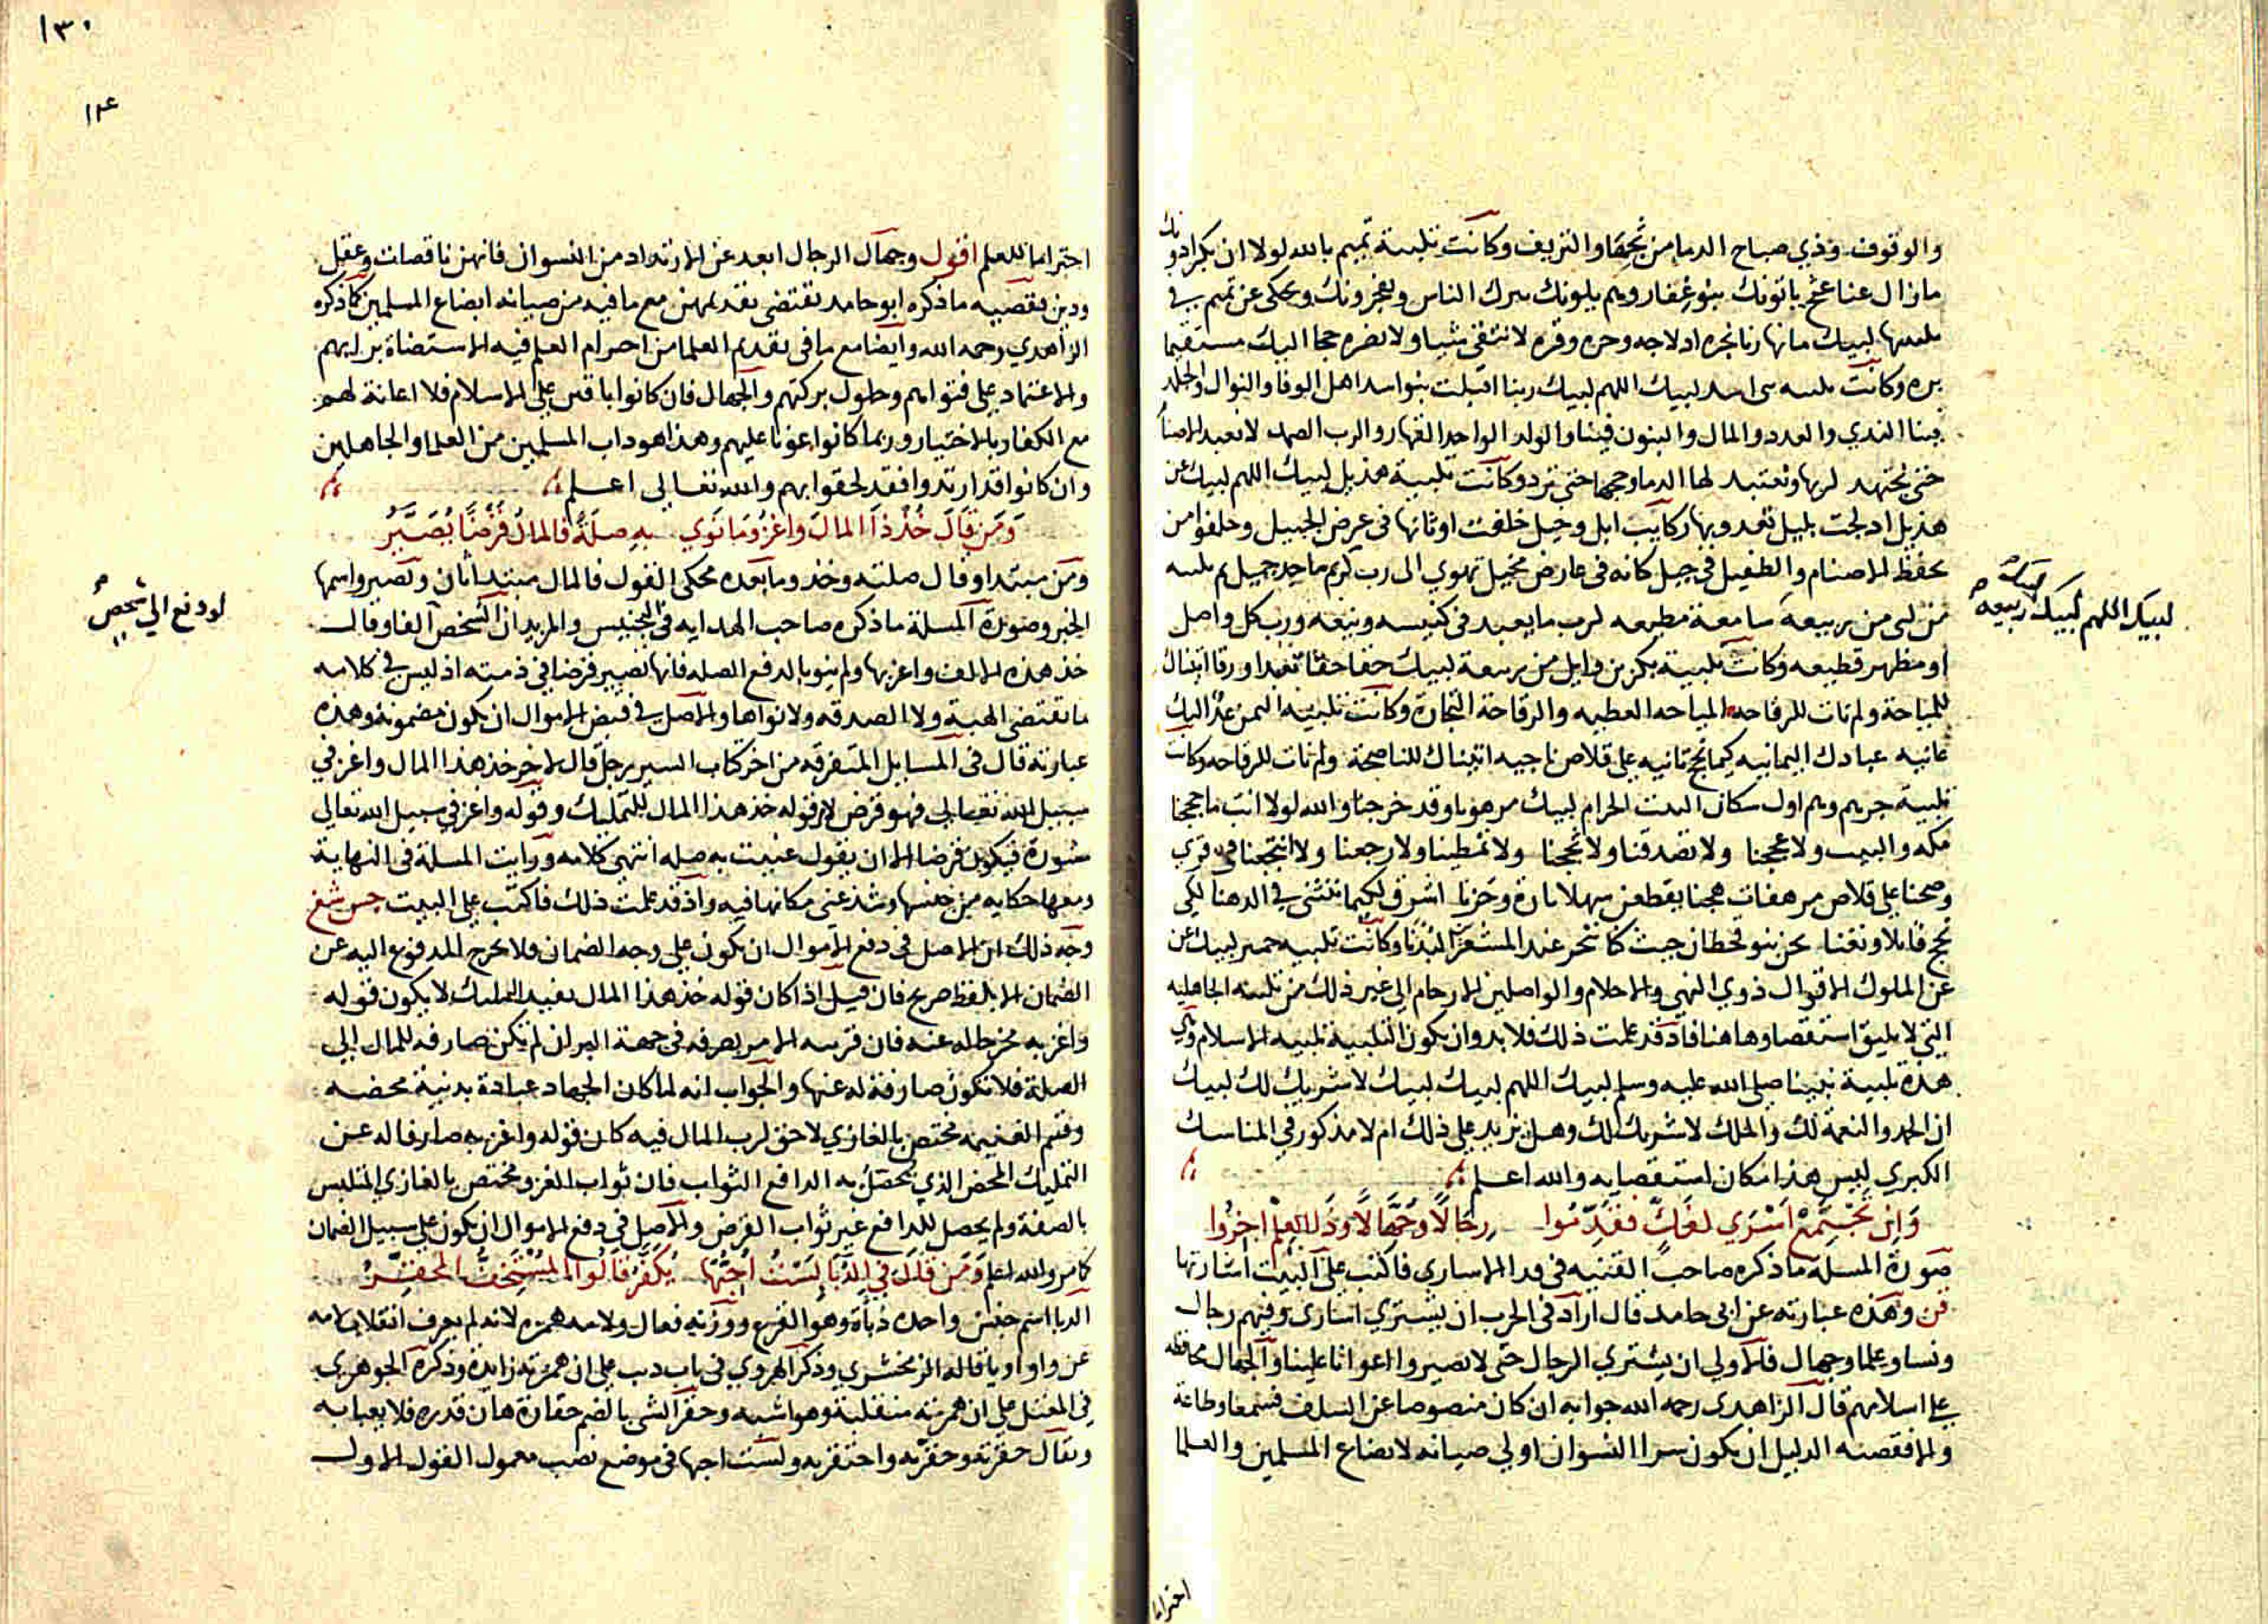 والوقوف وذي صباح الدما من ثجها والنزيف وكانت تلبية تميم بالله لولا ان بكرا دونك
مازال عنا عثج ياتونك بنو غفار وهم يلونك يبرك الناس ويفجرونك ويحكى عن تميم في
تلبيتها لبيك ما نهارنا نجره ادلاجه وحره وقره لا نتقي شيا ولا نضره حجا اليك مستقيما
بره وكانت تلبيه بني اسد لبيك اللهم لبيك ربنا اقبلت بنو اسد اهل الوفا والنوال والجلد
فينا الندي والعدد والمال والبنون فينا والولد الواحد القهار والرب الصمد لا نعبد الاصنام
حتى تجتهد لربها وتعتبد لها الدما وحجها حتى ترد وكانت تلبية هذيل لبيك اللهم لبيك عن
هذيل ادلجت بليل تعدو بها ركايب ابل وخيل خلفت اوثانها في عرض الجبيل وخلفوا من
يحفظ الاصنام والطفيل في جبل كانه في عارض مخيل تهوي الى رب كريم ماجد جميل
لبيك اللهم لبيك ربيعه
من لبى من ربيعة سامعة مطيعه لرب ما يعبد في كنيسه وبيعه ورب كل واصل
او مظهر قطيعه وكانت تلبية بكر بن وايل من ربيعة لبيك حقا حقا تعبدا ورقا اتيناك
للمياحة ولم نات للرقاحه المياحه العطيه والرقاحة التجارة وكانت تلبيه اليمن عك اليك
عانيه عبادك اليمانيه كيما نحج ثانيه على قلاص ناجيه اتيناك للنصاحة ولم نات للرقاحه وكانت
تلبية جرهم وهم اول سكان البيت الحرام لبيك مرهوبا وقد خرجنا والله لولا انت ما حججنا
مكه والبيت ولا عججنا ولا تصدقنا ولا ثججنا ولا تمطينا ولا رجعنا ولا انتجعنا في قري
وصحنا على قلاص مرهفات هجنا يقطعن سهلا تارة وحزنا اشرق لكيما ننثني في الدهنا لكي
نحج قابلا ونغنا نحن بنو قحطان حيث كنا ننحر عند المشعر البدنا وكانت تلبيه حمير لبيك عن
عن الملوك الاقوال ذوي النهي والاحلام والواصلين الارحام الي غير ذلك من تلبيه الجاهليه
التي لا يليق استقصاوها هنا فاذ قد علمت ذلك فلا بد وان يكون التلبية تلبيه الاسلام وهي
هذه تلبية نبينا صلى الله عليه وسلم لبيك اللهم لبيك لبيك لا شريك لك لبيك
ان الحمد والنعمة لك والملك لا شريك لك وهل نزيد على ذلك ام لا مذكور في المناسك
الكبري ليس هذا مكان استقصايه والله اعلم
وان تجتمع اسري لفك فقدموا رجالا وجهالا وذا العلم اخروا
صورة المسلة ما ذكره صاحب القنيه في فدا الاساري فاكتب على البيت اشارتها
قن وهذه عبارته عن ابي حامد قال اراد في الحرب ان يشتري اساري وفيهم رجال
ونسا وعلما وجهال فالاولي ان يشتري الرجال حتى لا يصيروا اعوانا علينا والجهال محافظه
على اسلامهم قال الزاهدى رحمه الله جوابه ان كان منصوصا عن السلف فسمعا وطاعة
والا فقضية الدليل ان يكون سرا النسوان اولي صيانه لابضاع المسلمين والعلما
احتراما
١٣٠
احتراما للعلم اقول وجهال الرجال ابعد عن الارتداد من النسوان فانهن ناقصات عقل
ودين فقضيه ما ذكره ابو حامد تقتضي تقديمهن مع ما فيه من صيانه ابضاع المسلمين كما ذكره
الزاهدي رحمه الله وايضا مع ما في تقديم العلما من احترام العلم فيه الاستضاة برايهم
والاعتماد على فتواهم وحلول بركتهم والجهال فان كانوا باقين على الاسلام فلا اعانة لهم
مع الكفار بالاختيار وربما كانوا عونا عليهم وهذا هو داب المسلمين من العلما والجاهلين
وان كانوا قد ارتدوا فقد لحقوا بهم والله تعالى اعلم
ومن قال خذ ذا المال واغز وما نوي به صلة فالمال قرضا يصير
ومن مبتدا وقال صلته وخذ وما بعده محكى القول فالمال مبتدا ثان وتصير واسمها
الخبر وصورة المسلة ما ذكره صاحب الهدايه في التجنيس والمزيد ان الشخص الفا وقال
لو دفع الي شخص
خذ هذه الالف واغز بها ولم ينو بالدفع الصله فانها تصيير قرضا في ذمته اذ ليس في كلامه
ما تقتضي الهبة ولا الصدقه ولا نواها والاصل في قبض الاموال ان يكون مضمونة وهذه
عبارته قال في المسايل المتفرقه من اخر كتاب السير رجل قال لاخر خذ هذا المال واغز في
سبيل الله تعالى فهو قرض لان قوله خذ هذا المال للتمليك وقوله واغز في سبيل الله تعالى
مشورة فيكون قرضا الا ان يقول عنيت به صله انتهى كلامه ورايت المسلة في النهاية
ومعها حكايه من جنسها وشذ عني مكانها فيه واذ قد علمت ذلك فاكتب على البيت
وجه ذلك ان الاصل في دفع الاموال ان يكون على وجه الضمان فلا يخرج المدفوع اليه عن
الضمان الا بلفظ صريح فان قيل اذا كان قوله خذ هذا المال يفيد التمليك لا يكون قوله
واغز به مخرجا له عنه فان قرينه الامر بصرفه في جهة البر ان لم تكن صارفه للمال الى
الصلة فلا تكون صارفة له عنها والجواب انه لما كان الجهاد عبادة بدنية محضه
وقسم الغنيمه مختص بالغازي لا حق لرب المال فيه كان قوله واغز به صارفا له عن
التمليك المحض الذي يحصل به الدافع الثواب فان ثواب الغزو مختص بالغازي المتلبس
بالصفة ولم يحصل للدافع غير ثواب القرض والاصل في دفع الاموال ان يكون على سبيل الضمان
كما مر والله اعلم ومن قال في الدبا لست احبها يكفر قالوا المستخف المحقر
الدبا اسم جنس واحده دباة وهو القرع ووزنه فعال ولامه همزه لانه لم يعرف انقلاب لامه
عن واو او يا قاله الزمخشري وذكر الهروي في باب دب على ان همزته زايدة وذكره الجوهري
في المعتل على ان همزته منقلبة وهو اشبه وحقر الشي بالضم حقارة هان قدره فلا يعبا به
ويقال حقرته وحقرته واحتقرته ولست احبها في موضع نصب معمول القول الاول